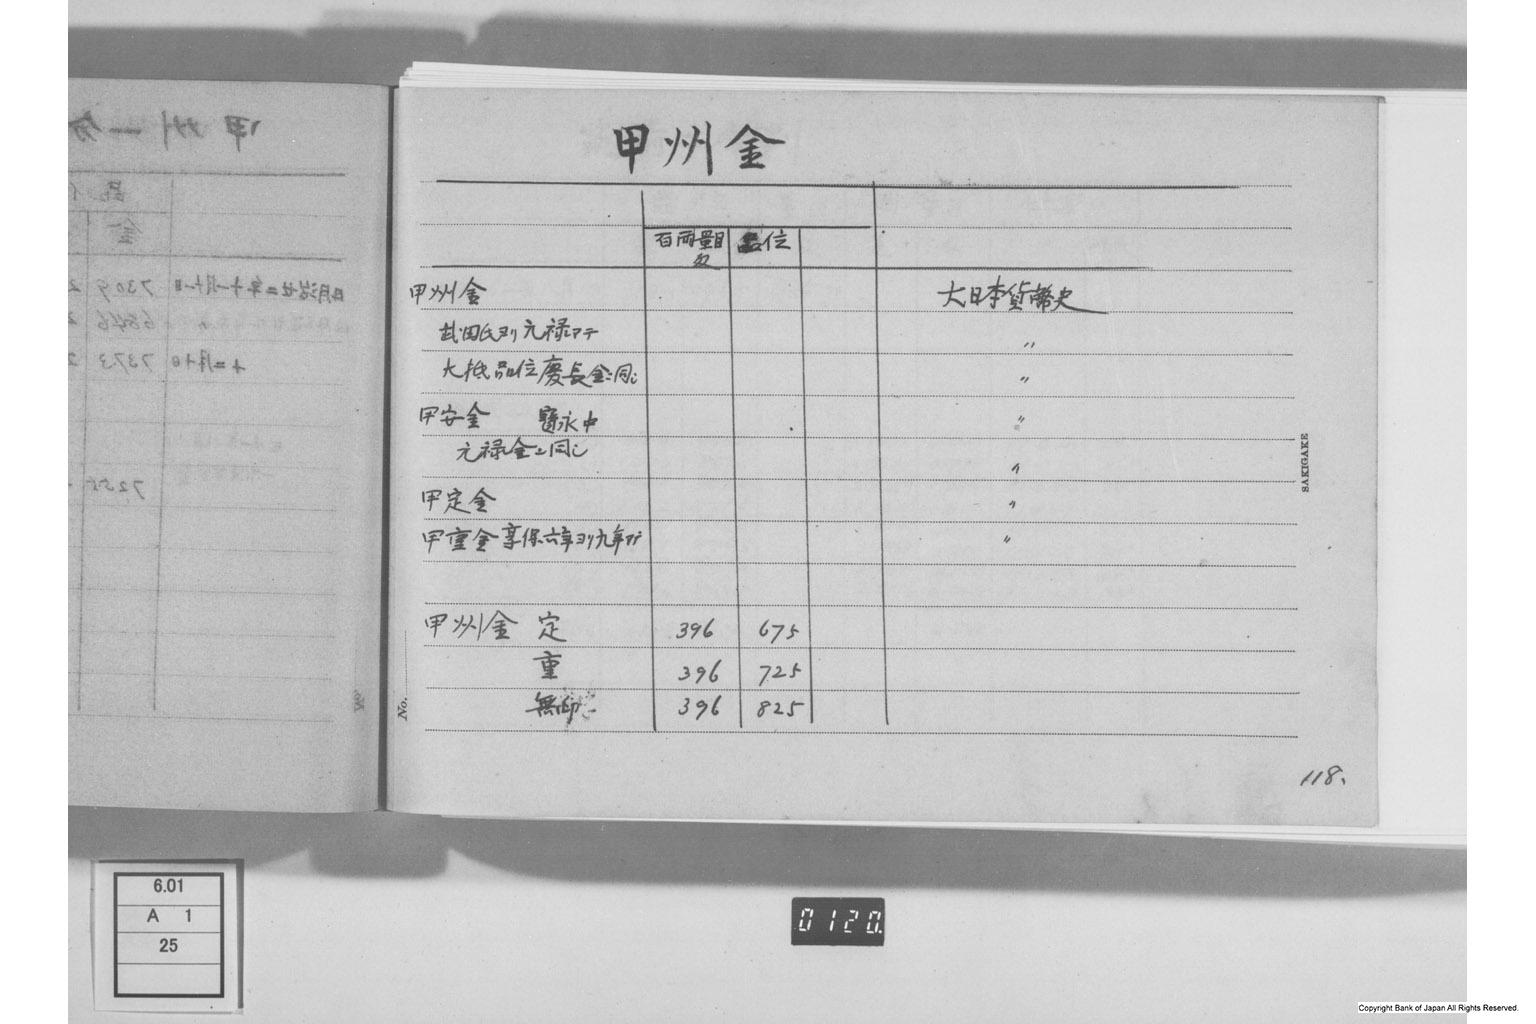 甲州金
百両量目 品位
匁
甲州金 大日本貨幣史
武田氏ヨリ元禄マテ 〃
大抵品位慶長金ニ同シ 〃
甲安金 寳永中 〃
元禄金ニ同シ 〃
甲定金 〃
甲重金 享保六年ヨリ九年マデ 〃
甲州金 定 396 675
重 396 725
無印 396 825
No.
SAKIGAKE
118.
甲州一分
品
金
明治廿二年十一月十一日 7309 2
6846 2
十二月十日 7373 2
7255
6.01
A 1
25
0120.
Copyright Bank of Japan All Rights Reserved.